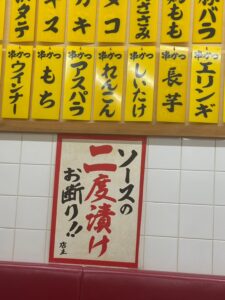 ささみ
タコ
ガキ
キス
串かつ エリンギ
串かつ 長芋
串かつ しいたけ
串かつ れんこん
串かつ アスパラ
串かつ もち
串かつ ウインナー
ソースの
二度漬け
お断り!!
店主